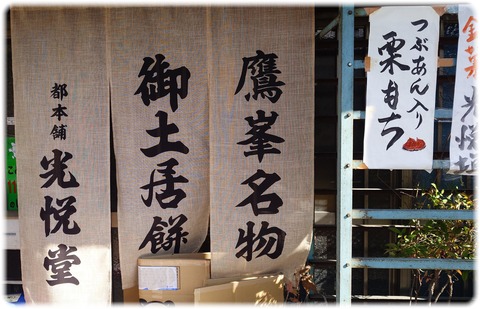 鷹峯名物
御土居餅
都本舗
光悦堂
つぶあん入り
栗もち